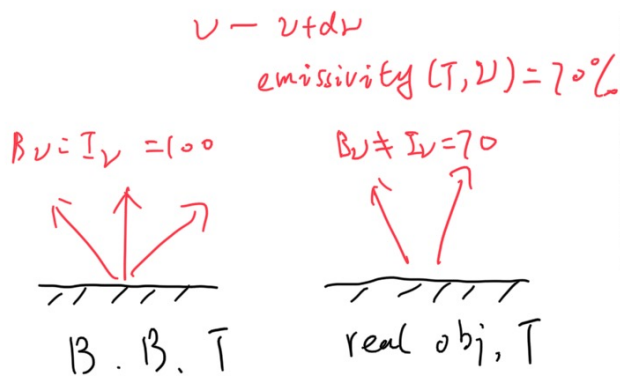 ν — ν+dν
emissivity (T, ν) = 70%
Bν = Iν = 100
Bν ≠ Iν = 70
B. B. T
real obj, T